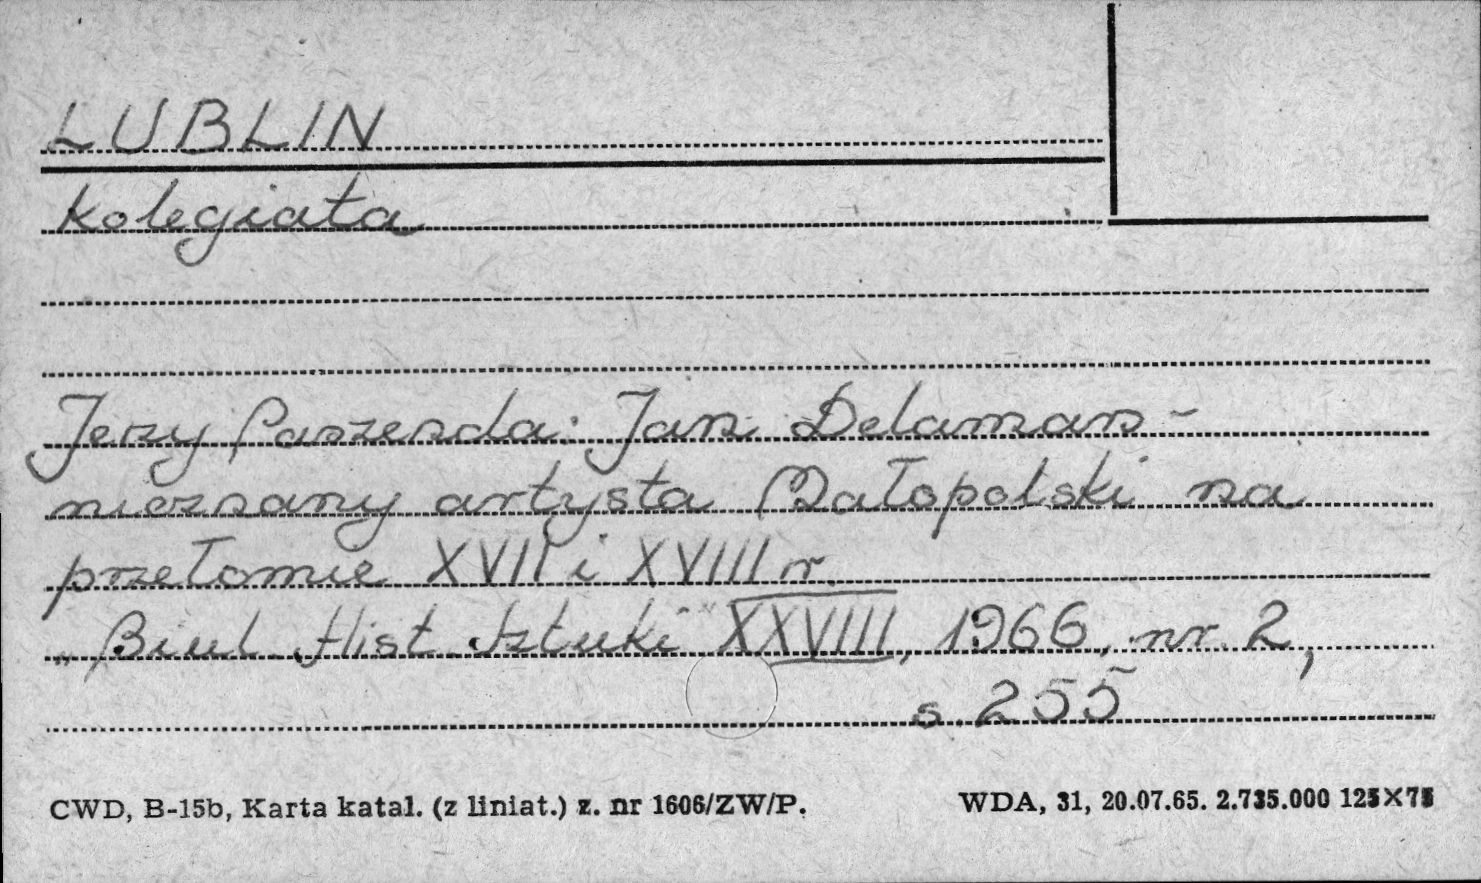 LUBLIN
Kolegiata
Jerzy Paszenda: Jan Delamars -
nieznany artysta Małopolski na
przełomie XVII i XVIII r.
„Biul. Hist. Sztuki" XXVIII, 1966, nr. 2,
s. 255
CWD, B-15b, Karta katal. (z liniat.) z. nr 1606/ZW/P.
WDA, 31, 20.07.65. 2.735.000 125×75